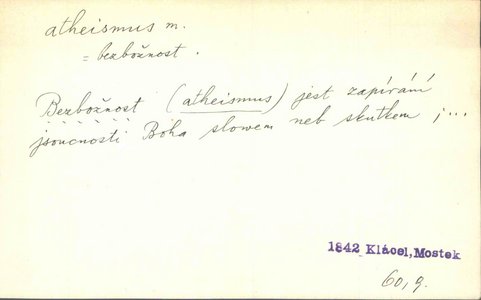 atheismus m.
= bezbožnost.
Bezbožnost (atheismus) jest zapírání
jsoucnosti Boha slowem neb skutkem ; ...
1842 Klácel, Mostek
60, 9.